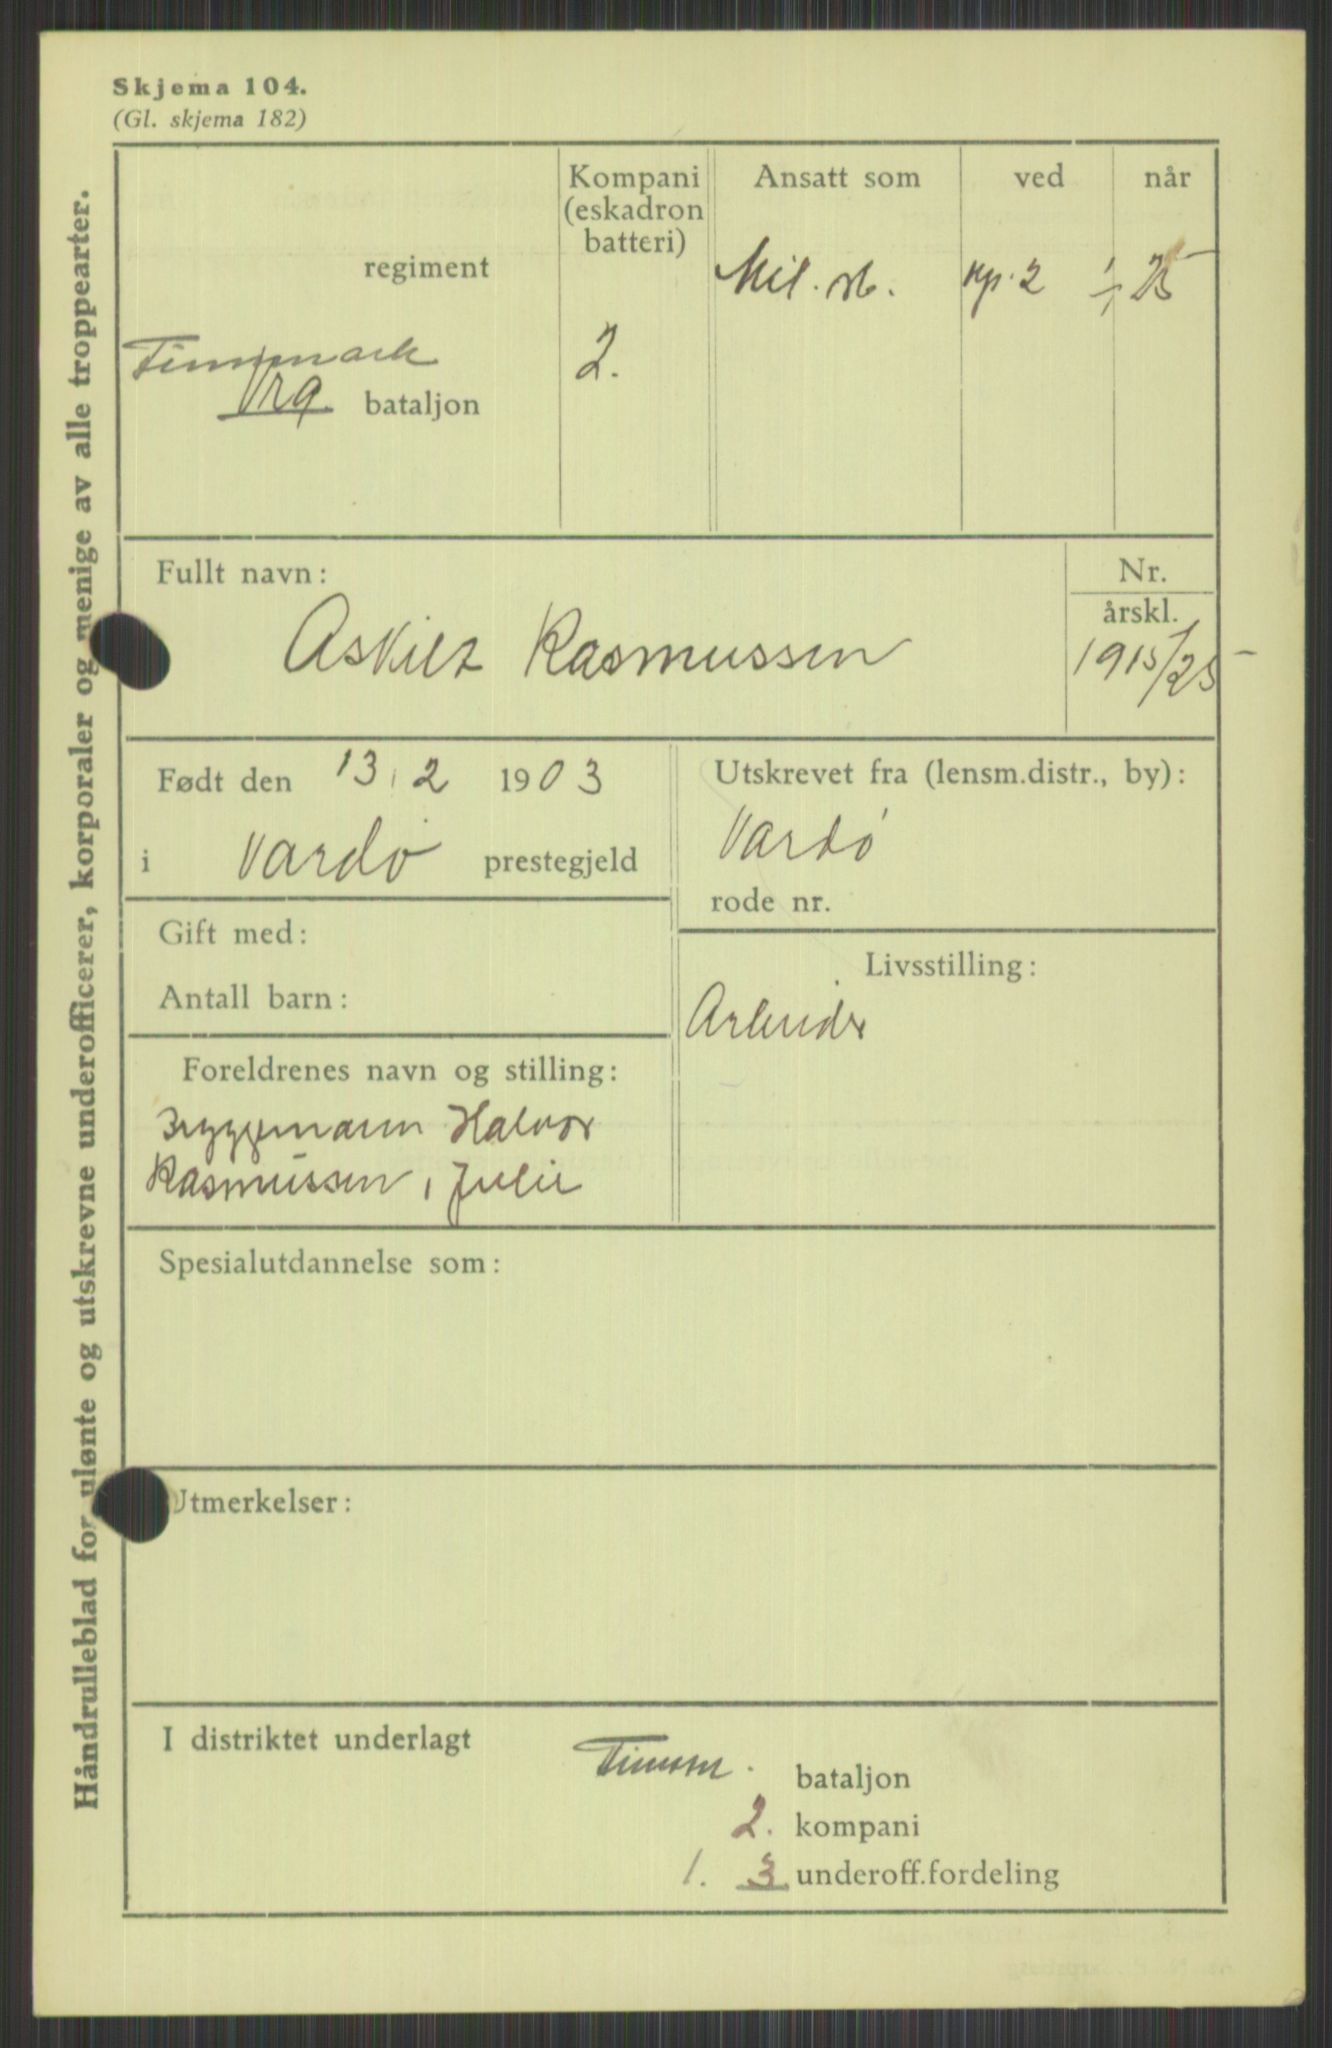 Skjema 104.
(Gl. skjema 182)
Håndrulleblad for ulønte og utskrevne underofficerer, korporaler og menige av alle troppearter.
regiment
Finnmark
bataljon
Kompani
(eskadron
batteri)
2.
Ansatt som
Mil. st.
ved
kp. 2
når
1/1 25
Fullt navn:
Askild Rasmussen
Nr.
årskl.
1915/25
Født den 13.2 1903
i Vardø prestegjeld
Utskrevet fra (lensm.distr., by):
Vardø
rode nr.
Gift med:
Antall barn:
Livsstilling:
Arbeider
Foreldrenes navn og stilling:
Bryggemann Halvor
Rasmussen, Julie
Spesialutdannelse som:
Utmerkelser:
I distriktet underlagt
Finnm. bataljon
2. kompani
1. 3 underoff.fordeling